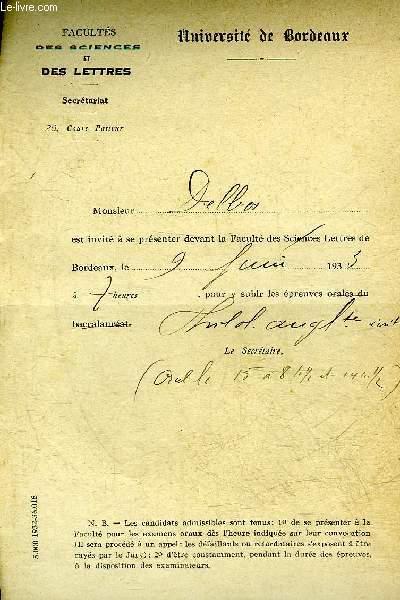 www.le-livre.com
FACULTÉS
DES SCIENCES
ET
DES LETTRES
Secrétariat
20, Cours Pasteur
Université de Bordeaux
Monsieur Delbos
est invité à se présenter devant la Faculté des Sciences Lettres de
Bordeaux, le 9 Juin 1933
à 7 heures, pour y subir les épreuves orales du
baccalauréat.
Le Secrétaire,
(Oral le 15 à 8 h
N. B. — Les candidats admissibles sont tenus : 1º de se présenter à la
Faculté pour les examens oraux dès l'heure indiquée sur leur convocation
(Il sera procédé à un appel : les défaillants ou retardataires s'exposent à être
rayés par le Jury) ; 2º d'être constamment, pendant la durée des épreuves,
à la disposition des examinateurs.